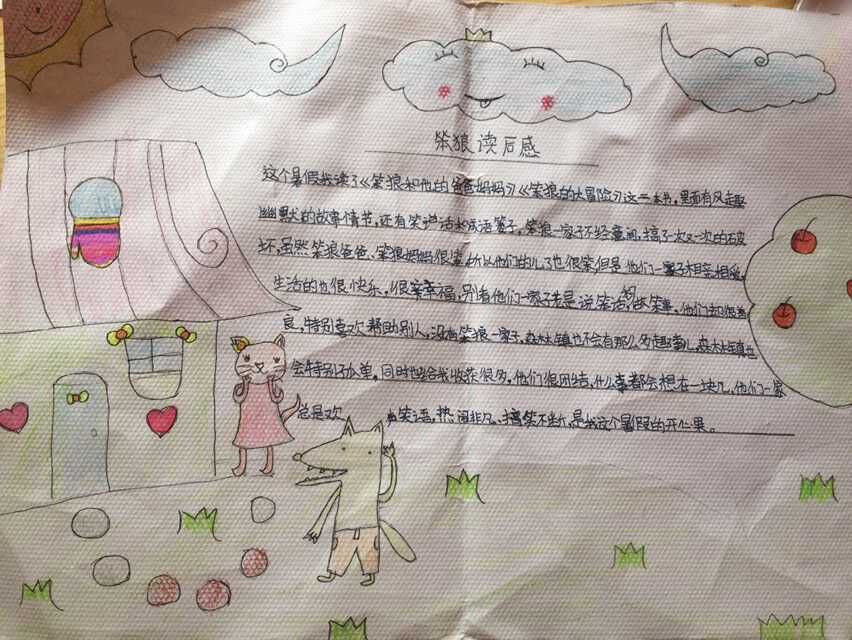 笨狼读后感
这个暑假我读了《笨狼和他的爸爸妈妈》《笨狼的大冒险》这二本书,里面有风趣
幽默的故事情节,还有笑话和成语等,笨狼一家子不经意间,搞了一次又一次的破
坏,虽然笨狼爸爸、笨狼妈妈很笨,所以他们的儿子也很笨,但是他们一家子相亲相爱,
生活的也很快乐,很幸福,别看他们一家子老是说笨话,做笨事,他们却很善
良,特别喜欢帮助别人,没有笨狼一家子,森林镇也不会有那么多趣事儿,森林镇也
会特别孤单,同时也给我收获很多,他们很团结,什么事都会想在一块儿,他们一家
总是欢 声笑语,热闹非凡、搞笑不断,是我这个暑假的开心果。